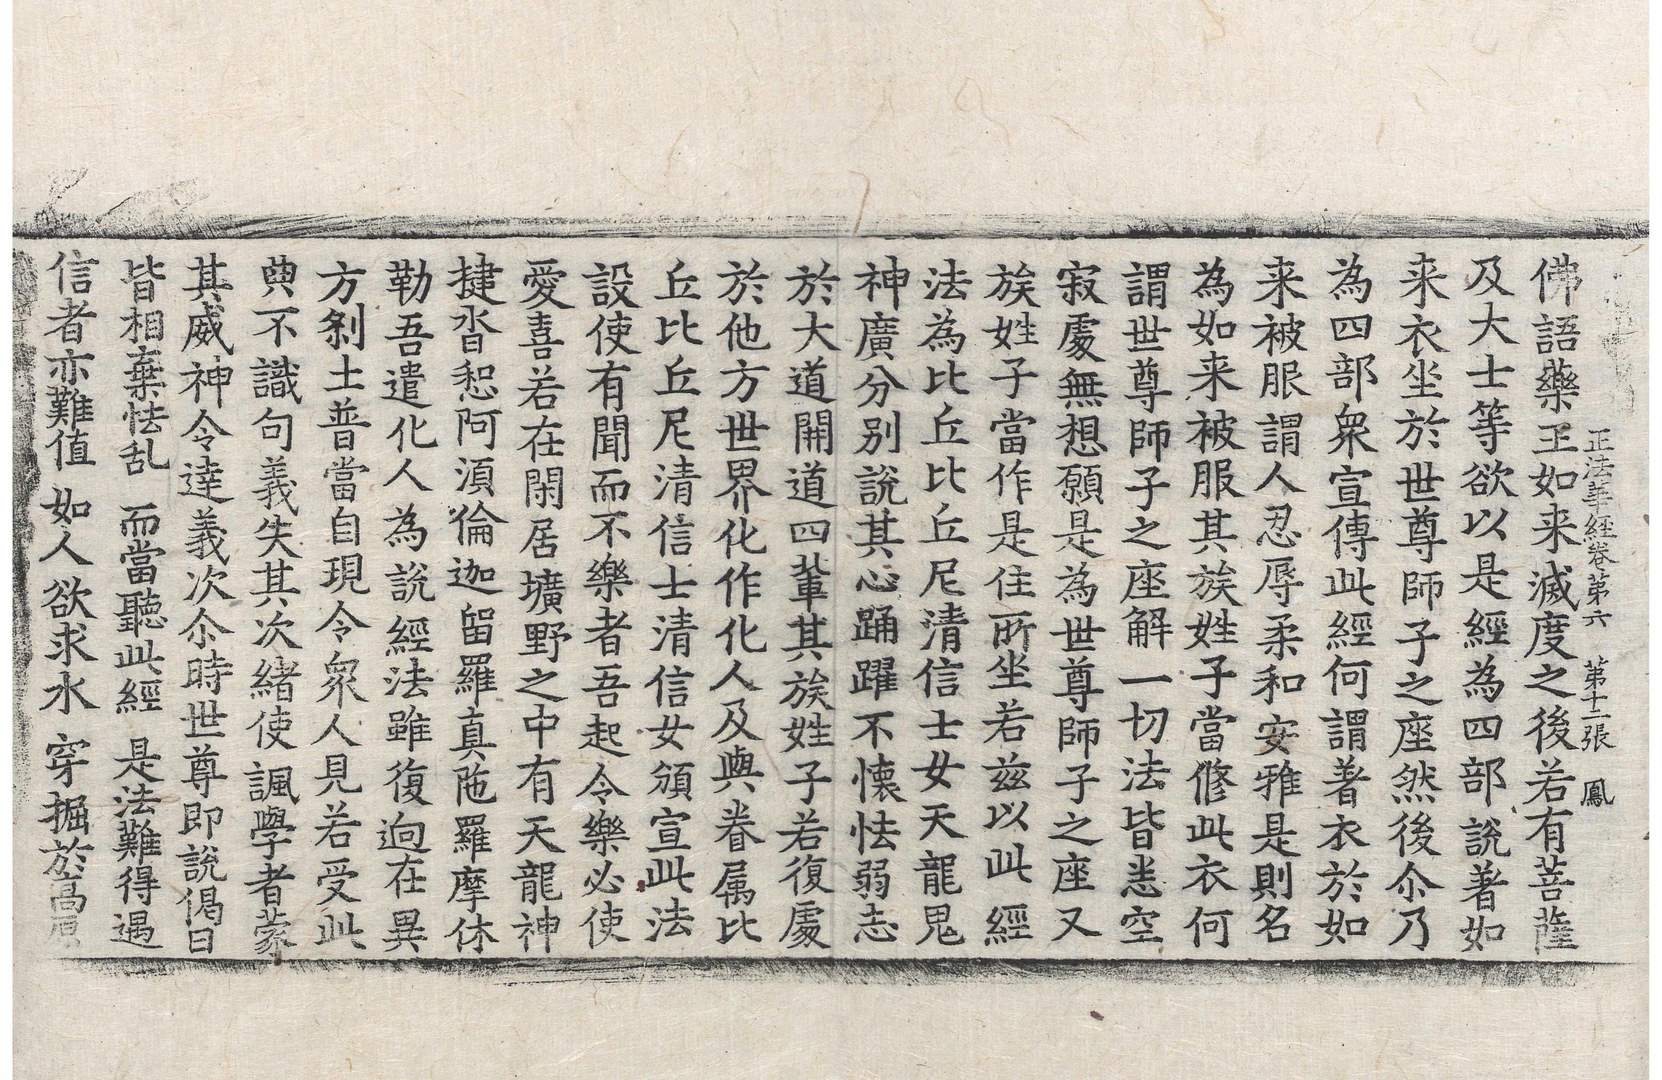 正法華經卷第六　第十二張　鳳
佛語藥王如来滅度之後若有菩薩
及大士等欲以是經為四部說著如
来衣坐於世尊師子之座然後尒乃
為四部衆宣傳此經何謂著衣於如
来被服謂人忍辱柔和安雅是則名
為如来被服其族姓子當修此衣何
謂世尊師子之座解一切法皆悉空
寂處無想願是為世尊師子之座又
族姓子當作是住所坐若兹以此經
法為比丘比丘尼清信士女天龍鬼
神廣分別說其心踊躍不懐怯弱志
於大道開道四輩其族姓子若復處
於他方世界化作化人及與眷属比
丘比丘尼清信士清信女頒宣此法
設使有聞而不樂者吾起令樂必使
愛喜若在閑居壙野之中有天龍神
揵沓惒阿須倫迦留羅真陁羅摩休
勒吾遣化人為說經法雖復逈在異
方剎土普當自現令衆人見若受此
典不識句義失其次緒使諷學者蒙
其威神令逹義次尒時世尊即說偈曰
皆相棄怯乱　而當聽此經　是法難得遇
信者亦難值　如人欲求水　穿掘於高原